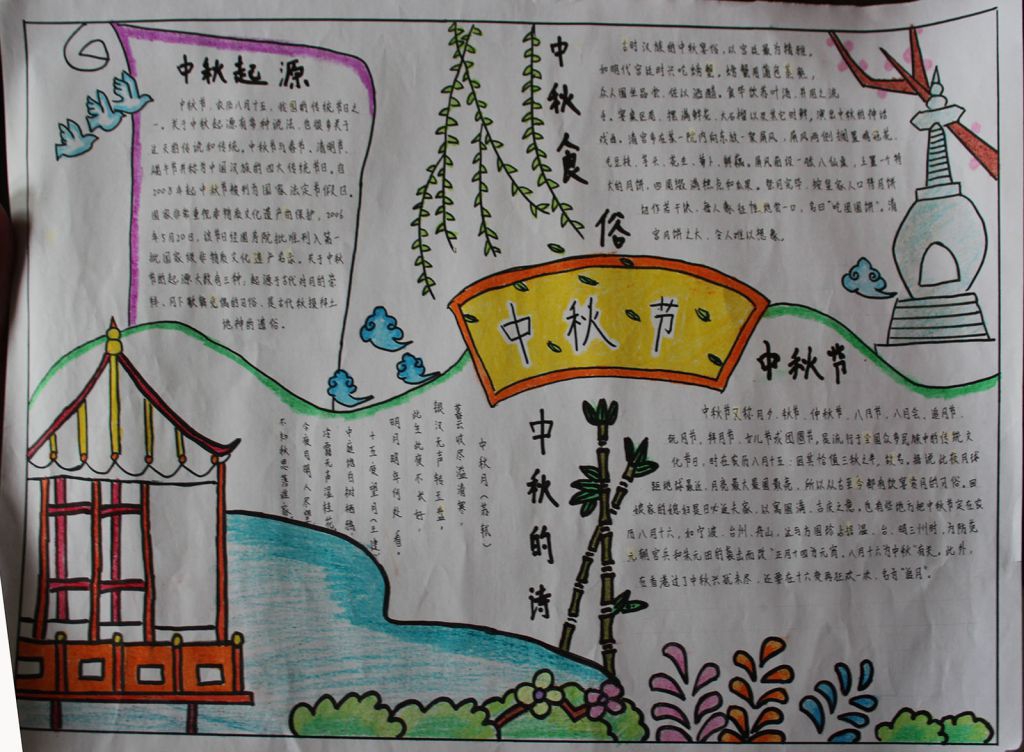 中秋起源
中秋节，农历八月十五，我国的传统节日之
一。关于中秋起源有多种说法，也很多关于
这天的传说和传统。中秋节与春节、清明节、
端午节并称为中国汉族的四大传统节日。自
2008年起中秋节被列为国家法定节假日。
国家非常重视非物质文化遗产的保护，2006
年5月20日，该节日经国务院批准列入第一
批国家级非物质文化遗产名录。关于中秋
节的起源大致有三种：起源于古代对月的崇
拜、月下歌舞觅偶的习俗，是古代秋报拜土
地神的遗俗。
中秋食俗
古时汉族的中秋宴俗，以宫廷最为精雅。
如明代宫廷时兴吃螃蟹。螃蟹用蒲包蒸熟，
众人围坐品尝，佐以酒醋。食毕饮苏叶汤，并用之洗
手。宴桌区周，摆满鲜花、大石榴以及其它时鲜，演出中秋的神话
戏曲。清宫多在某一院内向东放一架屏风，屏风两侧搁置鸡冠花、
毛豆技、芋头、花生、萝卜、鲜藕。屏风前设一张八仙桌，上置一个特
大的月饼，四周缀满糕点和瓜果。祭月完毕，按皇家人口将月饼
切作若干块，每人象征性地尝一口，名曰“吃团圆饼”。清
宫月饼之大，令人难以想象。
中秋节
中秋节
中秋节又称月夕、秋节、仲秋节、八月节、八月会、追月节、
玩月节、拜月节、女儿节或团圆节，是流行于全国众多民族中的传统文
化节日，时在农历八月十五；因其恰值三秋之半，故名。据说此夜月球
距地球最近，月亮最大最圆最亮，所以从古至今都有饮宴赏月的习俗；回
娘家的媳妇是日必返夫家，以寓圆满、吉庆之意。也有些地方把中秋节定在农
历八月十六，如宁波、台州、舟山，这与方国珍占据温、台、明三州时，为防范
元朝官兵和朱元璋的袭击而改“正月十四为元宵、八月十六为中秋”有关。此外，
在香港过了中秋兴致未尽，还要在十六夜再狂欢一次，名为“追月”。
中秋的诗
中秋月（苏轼）
暮云收尽溢清寒，
银汉无声转玉盘。
此生此夜不长好，
明月明年何处看。
十五夜望月（王建）
中庭地白树栖鸦，
冷露无声湿桂花。
今夜月明人尽望，
不知秋思落谁家